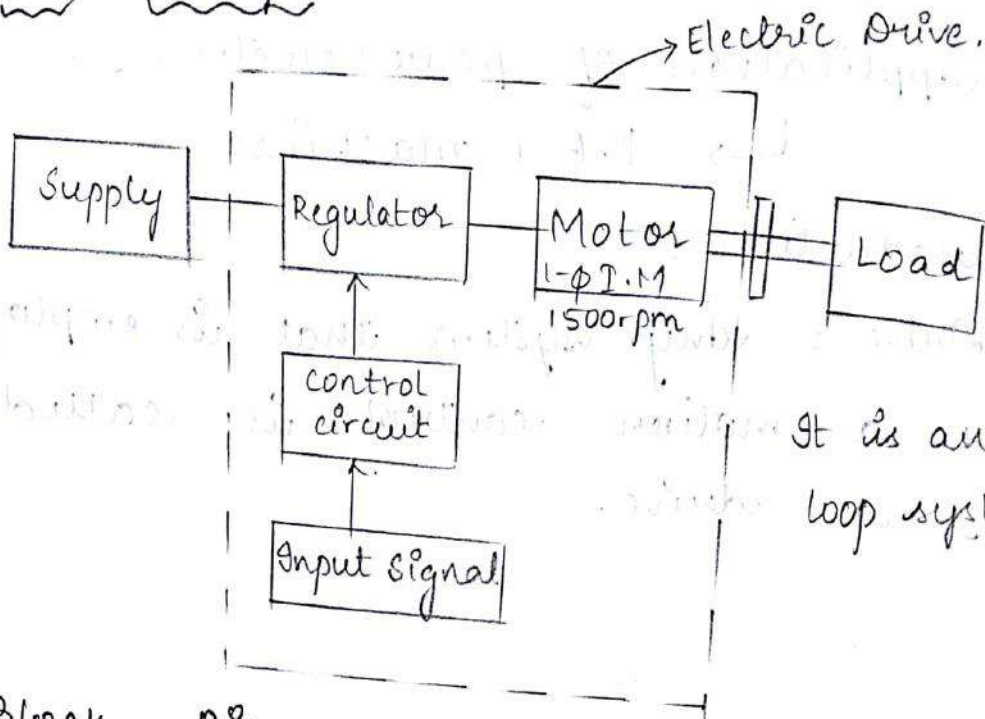 Electric Drive.
Supply
Regulator
Motor
1-φ I.M
1500rpm
Load
control
circuit
Input signal
It is an
loop sys
Block